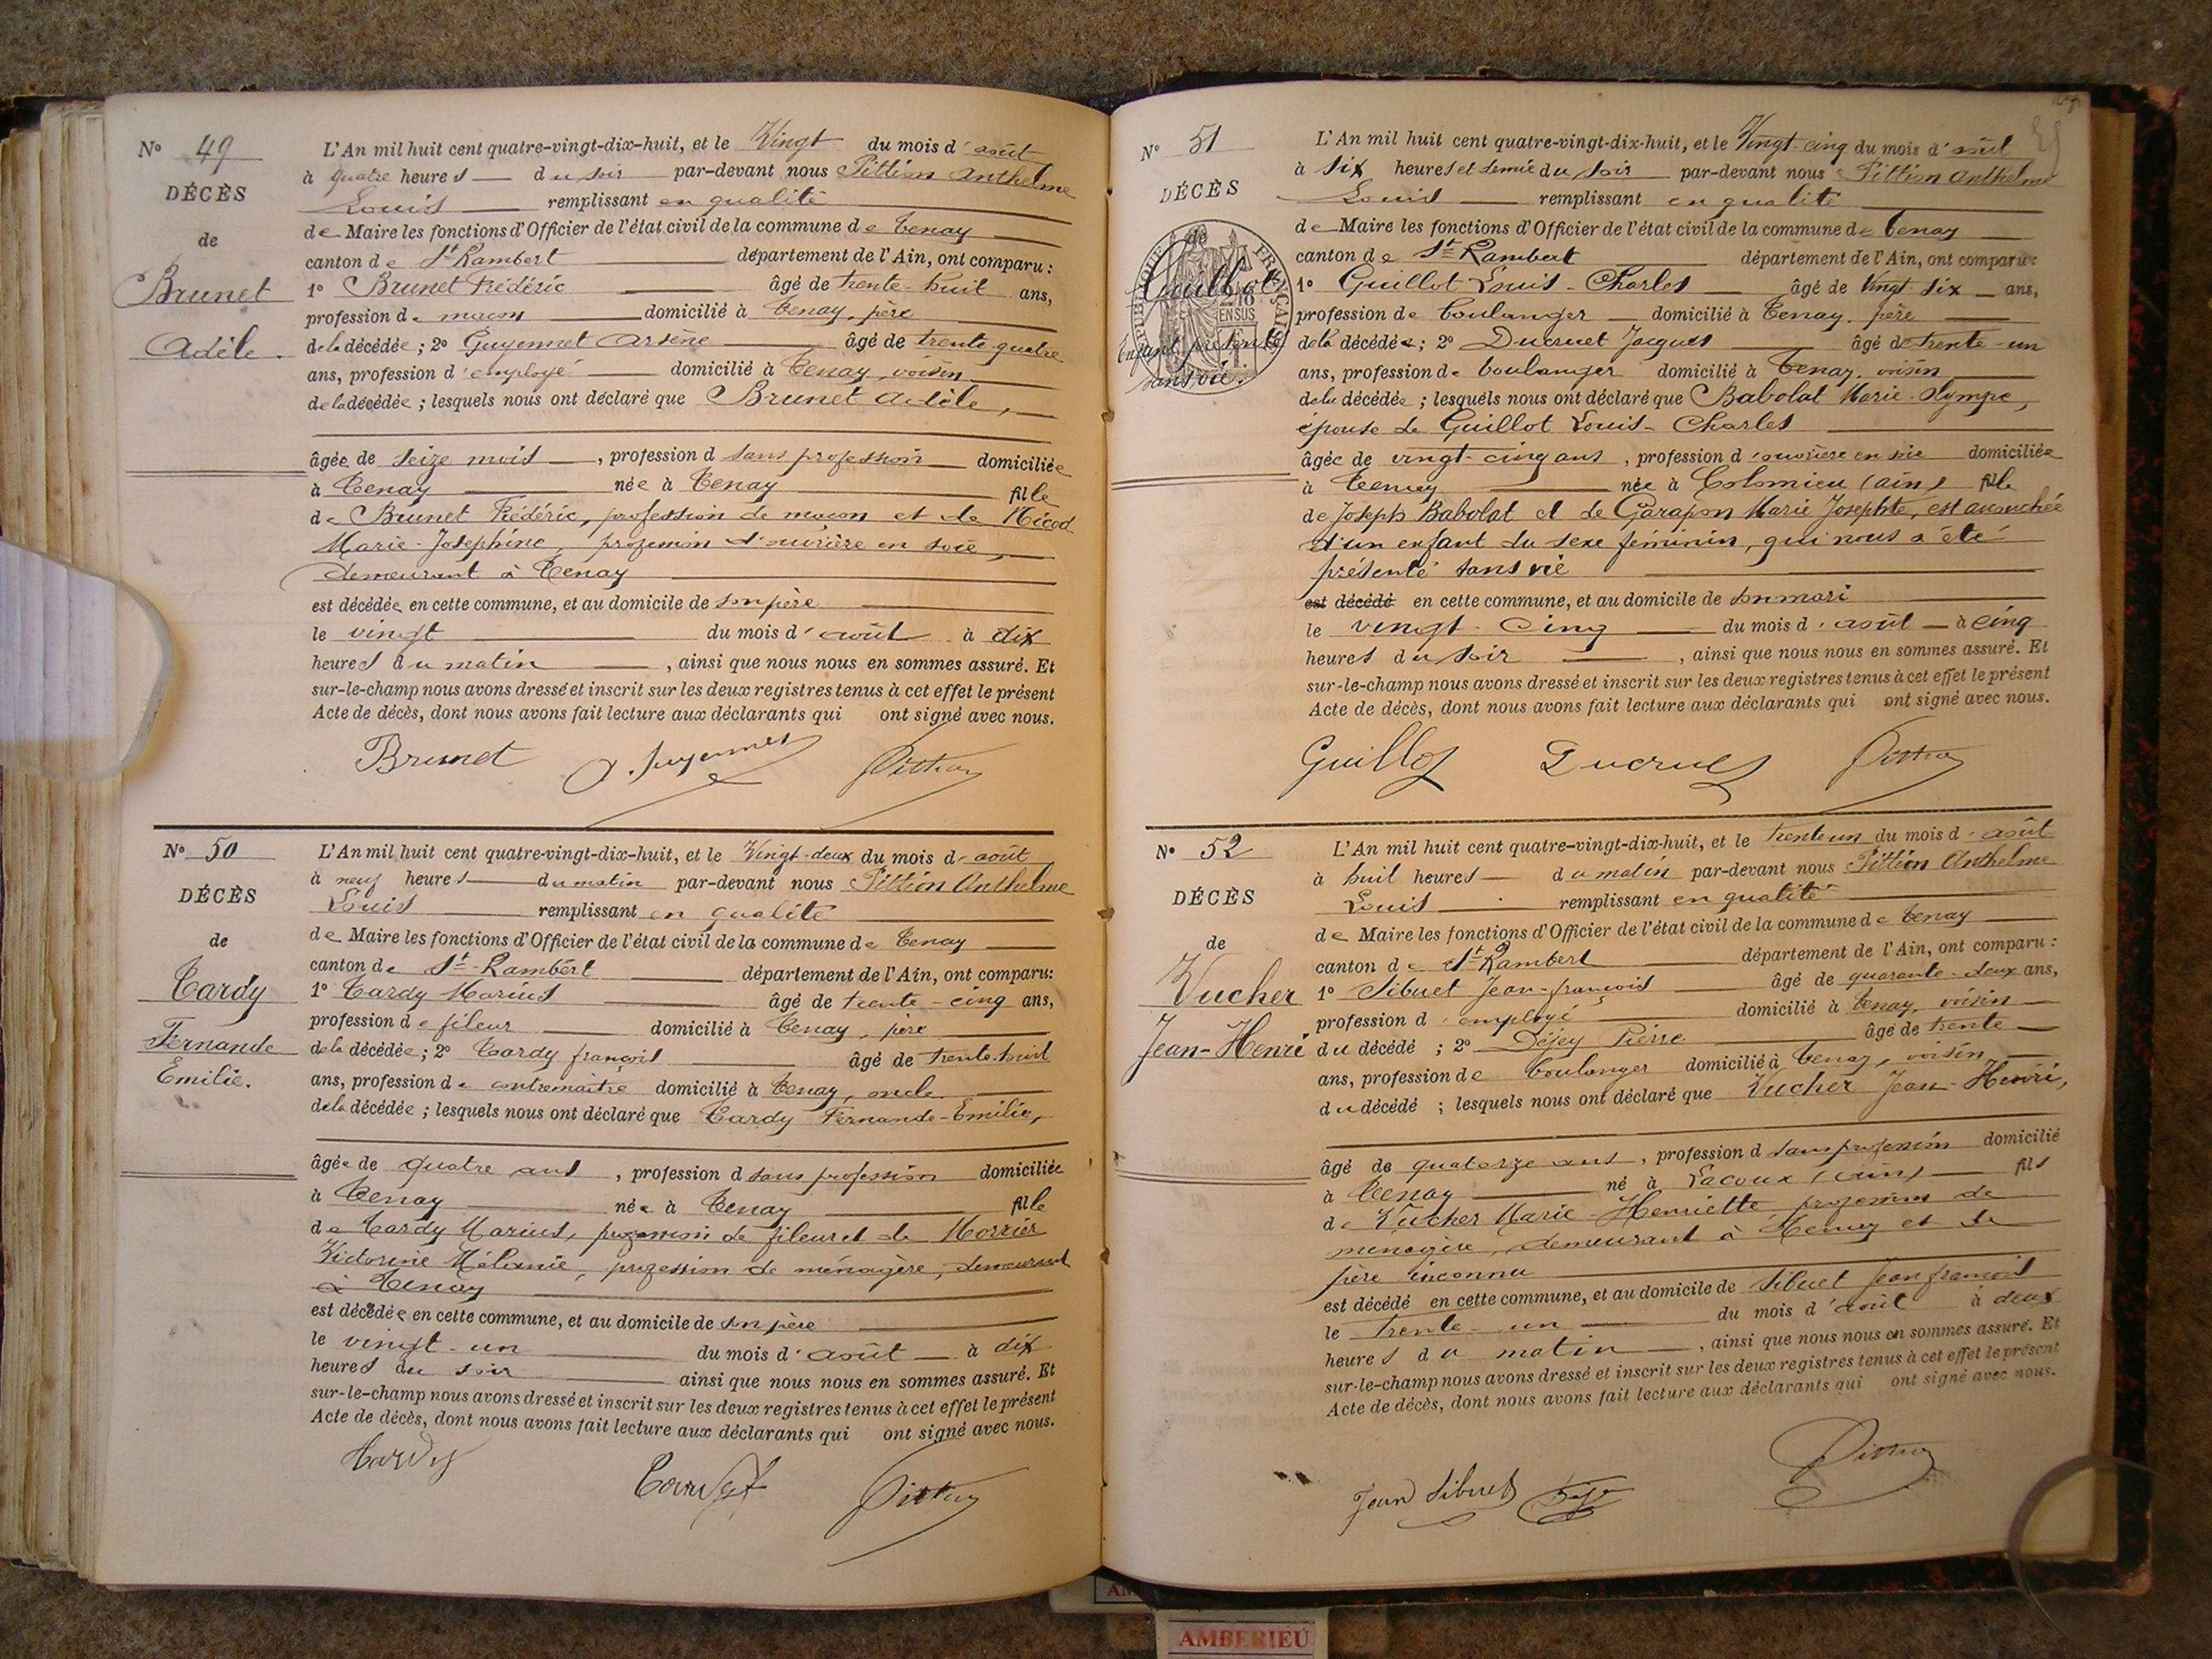 N° 49
DÉCÈS
de
Brunet
Adèle.
L'An mil huit cent quatre-vingt-dix-huit, et le Vingt du mois d'août
à quatre heures du soir par-devant nous Pittion Anthelme
Louis remplissant en qualité
de Maire les fonctions d'Officier de l'état civil de la commune de Tenay
canton de St Rambert département de l'Ain, ont comparu :
1° Brunet Frédéric âgé de trente-huit ans,
profession de maçon domicilié à Tenay, père
de la décédée ; 2° Guyennet Arsène âgé de trente quatre
ans, profession d'employé domicilié à Tenay, voisin
de la décédée ; lesquels nous ont déclaré que Brunet Adèle,
âgée de seize mois, profession d sans profession domiciliée
à Tenay née à Tenay fille
de Brunet Frédéric, profession de maçon et de Nicod
Marie-Josephine, profession d'ouvrière en soie,
demeurant à Tenay
est décédée en cette commune, et au domicile de son père
le vingt du mois d'août à dix
heures du matin, ainsi que nous nous en sommes assuré. Et
sur-le-champ nous avons dressé et inscrit sur les deux registres tenus à cet effet le présent
Acte de décès, dont nous avons fait lecture aux déclarants qui ont signé avec nous.
Brunet A. Guyennet Pittion
N° 50
DÉCÈS
de
Tardy
Fernande
Emilie.
L'An mil huit cent quatre-vingt-dix-huit, et le Vingt-deux du mois d'août
à neuf heures du matin par-devant nous Pittion Anthelme
Louis remplissant en qualité
de Maire les fonctions d'Officier de l'état civil de la commune de Tenay
canton de St-Rambert département de l'Ain, ont comparu:
1° Tardy Marius âgé de trente-cinq ans,
profession de fileur domicilié à Tenay, père
de la décédée ; 2° Tardy françois âgé de trente-huit
ans, profession de contremaître domicilié à Tenay, oncle
de la décédée ; lesquels nous ont déclaré que Tardy Fernande-Emilie,
âgée de quatre ans, profession d sans profession domiciliée
à Tenay née à Tenay fille
de Tardy Marius, profession de fileur et de Morrier
Victorine Mélanie, profession de ménagère, demeurant
à Tenay
est décédée en cette commune, et au domicile de son père
le vingt-un du mois d'août à dix
heures du soir ainsi que nous nous en sommes assuré. Et
sur-le-champ nous avons dressé et inscrit sur les deux registres tenus à cet effet le présent
Acte de décès, dont nous avons fait lecture aux déclarants qui ont signé avec nous.
Tardy Tardy f Pittion
N° 51
DÉCÈS
de
Guillot
Enfant présenté
sans vie.
L'An mil huit cent quatre-vingt-dix-huit, et le Vingt-cinq du mois d'août
à six heures et demie du soir par-devant nous Pittion Anthelme
Louis remplissant en qualité
de Maire les fonctions d'Officier de l'état civil de la commune de Tenay
canton de St Rambert département de l'Ain, ont comparu :
1° Guillot Louis-Charles âgé de Vingt-six ans,
profession de boulanger domicilié à Tenay, père
de la décédée ; 2° Ducruet Jacques âgé de trente-un
ans, profession de boulanger domicilié à Tenay, voisin
de la décédée ; lesquels nous ont déclaré que Babolat Marie-Olympe,
épouse de Guillot Louis-Charles
âgée de vingt-cinq ans, profession d'ouvrière en soie domiciliée
à Tenay née à Colomieu (Ain) fille
de Joseph Babolat et de Garapon Marie Josephte, est accouchée
d'un enfant du sexe féminin, qui nous a été
présenté sans vie
est décédé en cette commune, et au domicile de son mari
le vingt-cinq du mois d'août à cinq
heures du soir, ainsi que nous nous en sommes assuré. Et
sur-le-champ nous avons dressé et inscrit sur les deux registres tenus à cet effet le présent
Acte de décès, dont nous avons fait lecture aux déclarants qui ont signé avec nous.
Guillot Ducruet Pittion
N° 52
DÉCÈS
de
Vucher
Jean-Henri
L'An mil huit cent quatre-vingt-dix-huit, et le trente un du mois d'août
à huit heures du matin par-devant nous Pittion Anthelme
Louis remplissant en qualité
de Maire les fonctions d'Officier de l'état civil de la commune de Tenay
canton de St Rambert département de l'Ain, ont comparu :
1° Sibuet Jean-françois âgé de quarante-deux ans,
profession d'employé domicilié à Tenay, voisin
du décédé ; 2° Déjey Pierre âgé de trente
ans, profession de boulanger domicilié à Tenay, voisin
du décédé ; lesquels nous ont déclaré que Vucher Jean-Henri,
âgé de quatorze ans, profession d sans profession domicilié
à Tenay né à Lacoux (Ain) fils
de Vucher Marie-Henriette profession de
ménagère, demeurant à Tenay et de
père inconnu
est décédé en cette commune, et au domicile de Sibuet Jean françois
le trente-un du mois d'août à deux
heures du matin, ainsi que nous nous en sommes assuré. Et
sur-le-champ nous avons dressé et inscrit sur les deux registres tenus à cet effet le présent
Acte de décès, dont nous avons fait lecture aux déclarants qui ont signé avec nous.
Jean Sibuet Pittion
AMBERIEU